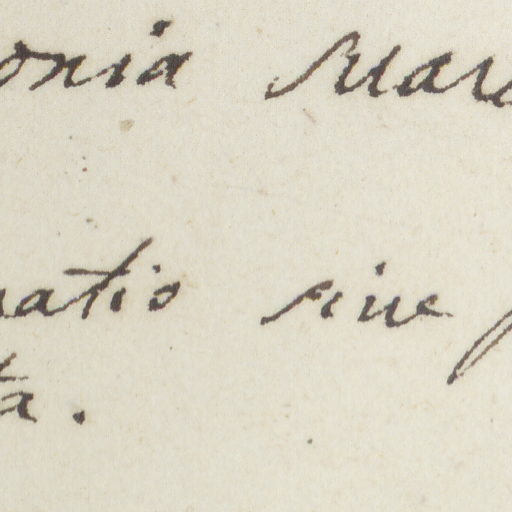 onia Mar
natio sine
ta.